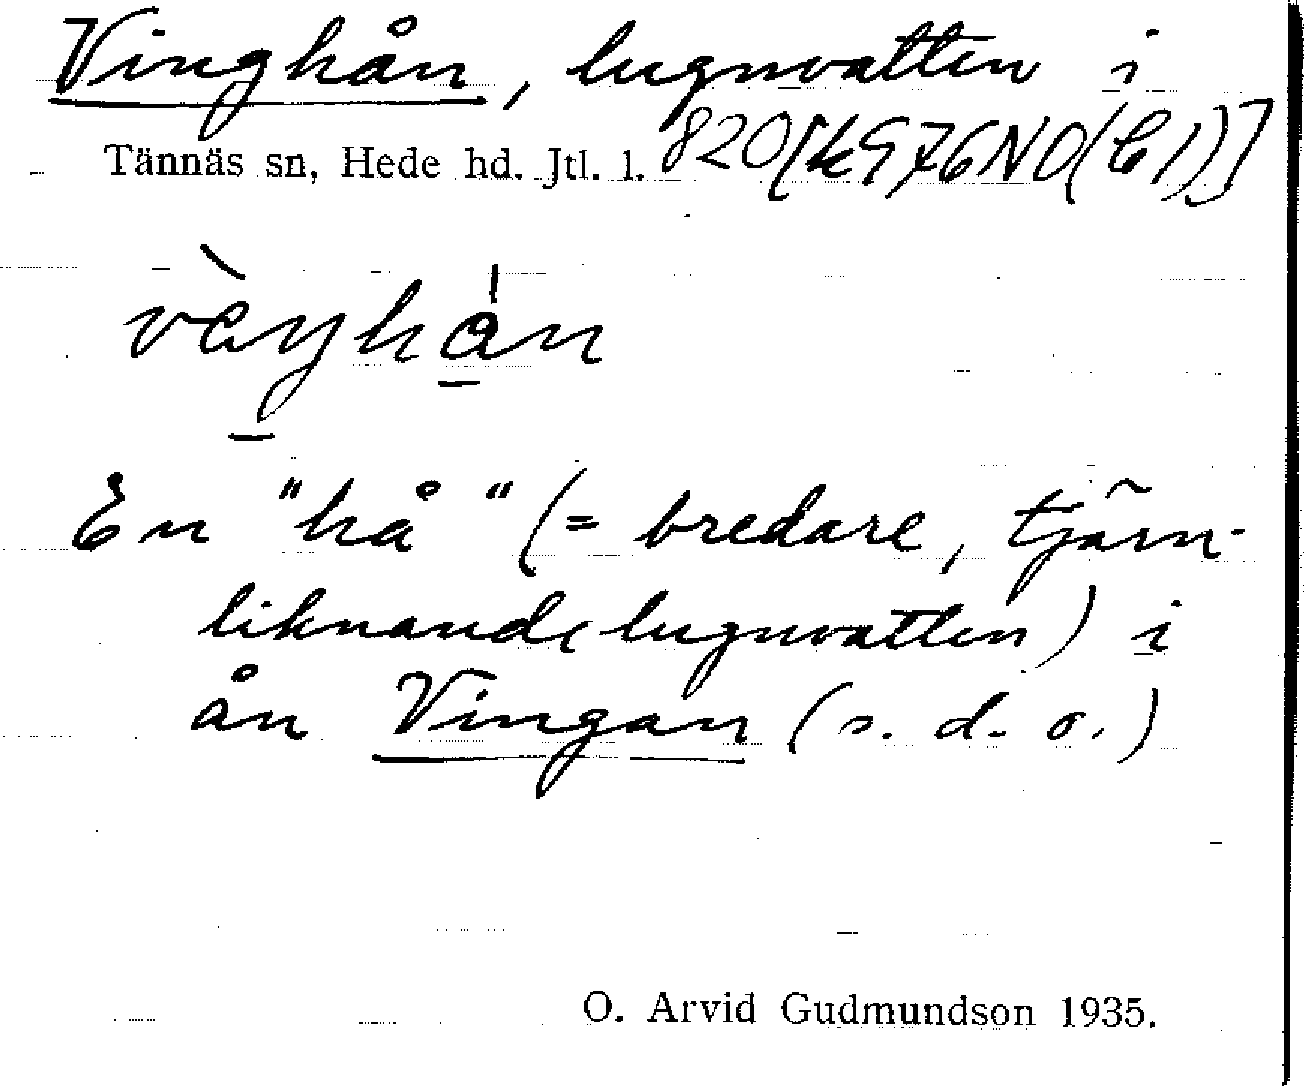 Vinghån, lugnvatten i
Tännäs sn, Hede hd. Jtl. l. 820[k976NO(C1)]
En "hå" (= bredare, tjärn-
liknande lugnvatten) i
ån Vingan (s. d. o.)
O. Arvid Gudmundson 1935.